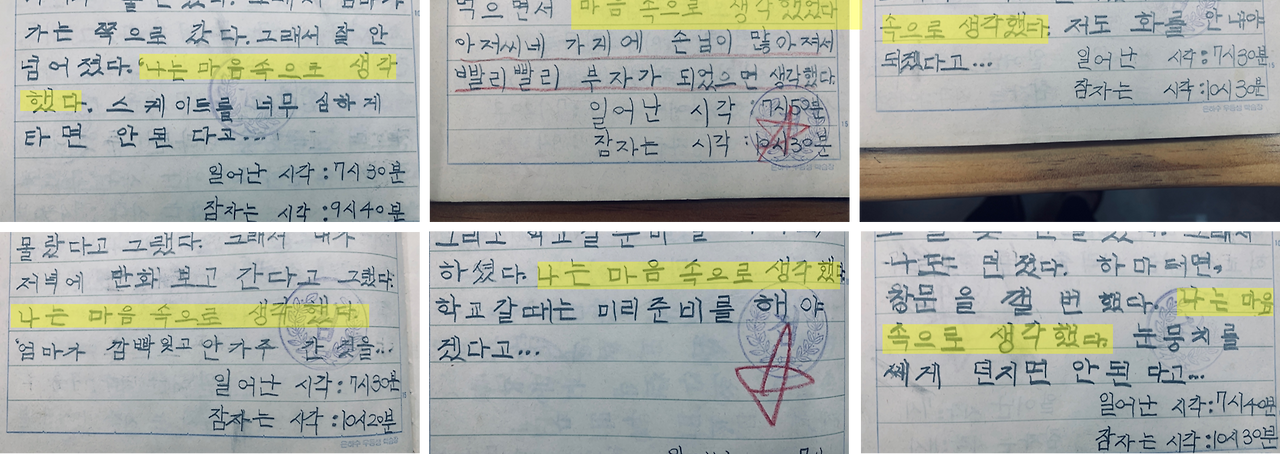 가는 쪽으로 갔다. 그래서 잘 안
넘어졌다. '나는 마음속으로 생각
했다. 스케이트를 너무 심하게
타면 안 된 다고...
일어난 시각:7시30분
잠자는 시각:9시40분
먹으면서 마음 속으로 생각했었다
아저씨네 가게에 손님이 많아져서
빨리빨리 부자가 되었으면 생각했다.
일어난 시각 :7시50분
잠자는 시각 :10시30분
속으로 생각했다. 저도 화를 안내야
되겠다고... 일어난 시각:7시30분
잠자는 시각:10시30분
몰랐다고 그랬다. 그래서 내가
저녁에 만화 보고 간다고 그랬다.
나는 마음 속으로 생각했다.
"엄마가 깜빡잊고 안가주 간 것을...
일어난 시각:7시30분
잠자는 시각:10시20분
그리고 학교갈 준비를
하셨다. 나는 마음 속으로 생각했다
학교갈때는 미리준비를 해야
겠다고...
나도 던졌다. 하마터면,
창문을 깰 번했다. 나는 마음
속으로 생각했다. 눈뭉치를
쎄게 던지면 안 된 다고...
일어난 시각:7시40분
잠자는 시각:10시30분